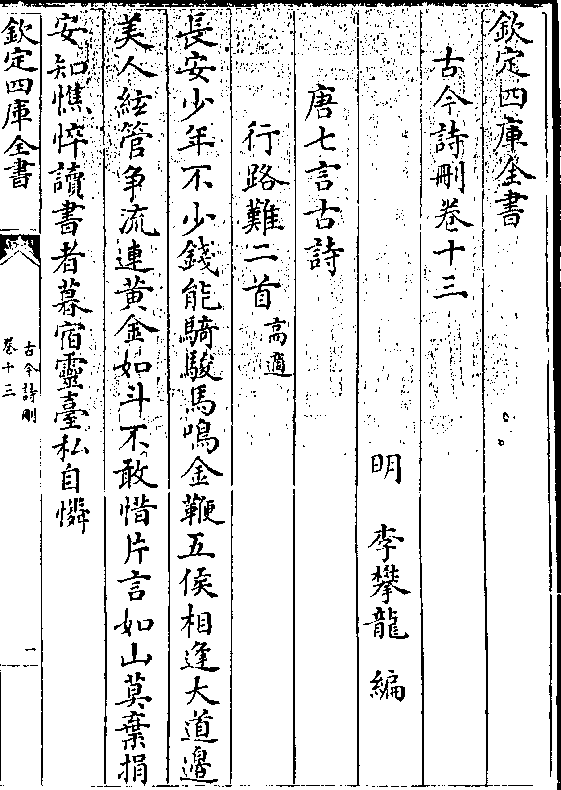 欽定四庫全書
古今詩刪卷十三
明 李攀龍 編
唐七言古詩
行路難二首 高適
長安少年不少錢能騎駿馬鳴金鞭五侯相逢大道邊
美人絃管争流連黄金如斗不敢惜片言如山莫棄捐
安知憔悴讀書者暮宿靈臺私自憐
欽定四庫全書
古今詩刪
卷十三
一